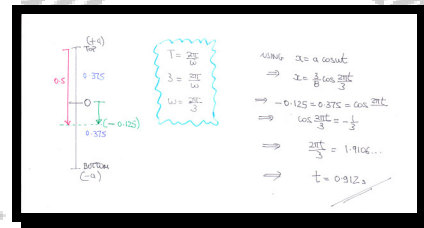 (+a)
TOP
0.5
0.375
O
(-0.125)
0.375
BOTTOM
(-a)
T = 2π/ω
3 = 2π/ω
ω = 2π/3
USING x = a cosωt
⇒ x = 3/8 cos 2πt/3
⇒ -0.125 = 0.375 = cos 2πt/3
⇒ cos 2πt/3 = -1/3
⇒ 2πt/3 = 1.9106...
⇒ t = 0.912 s